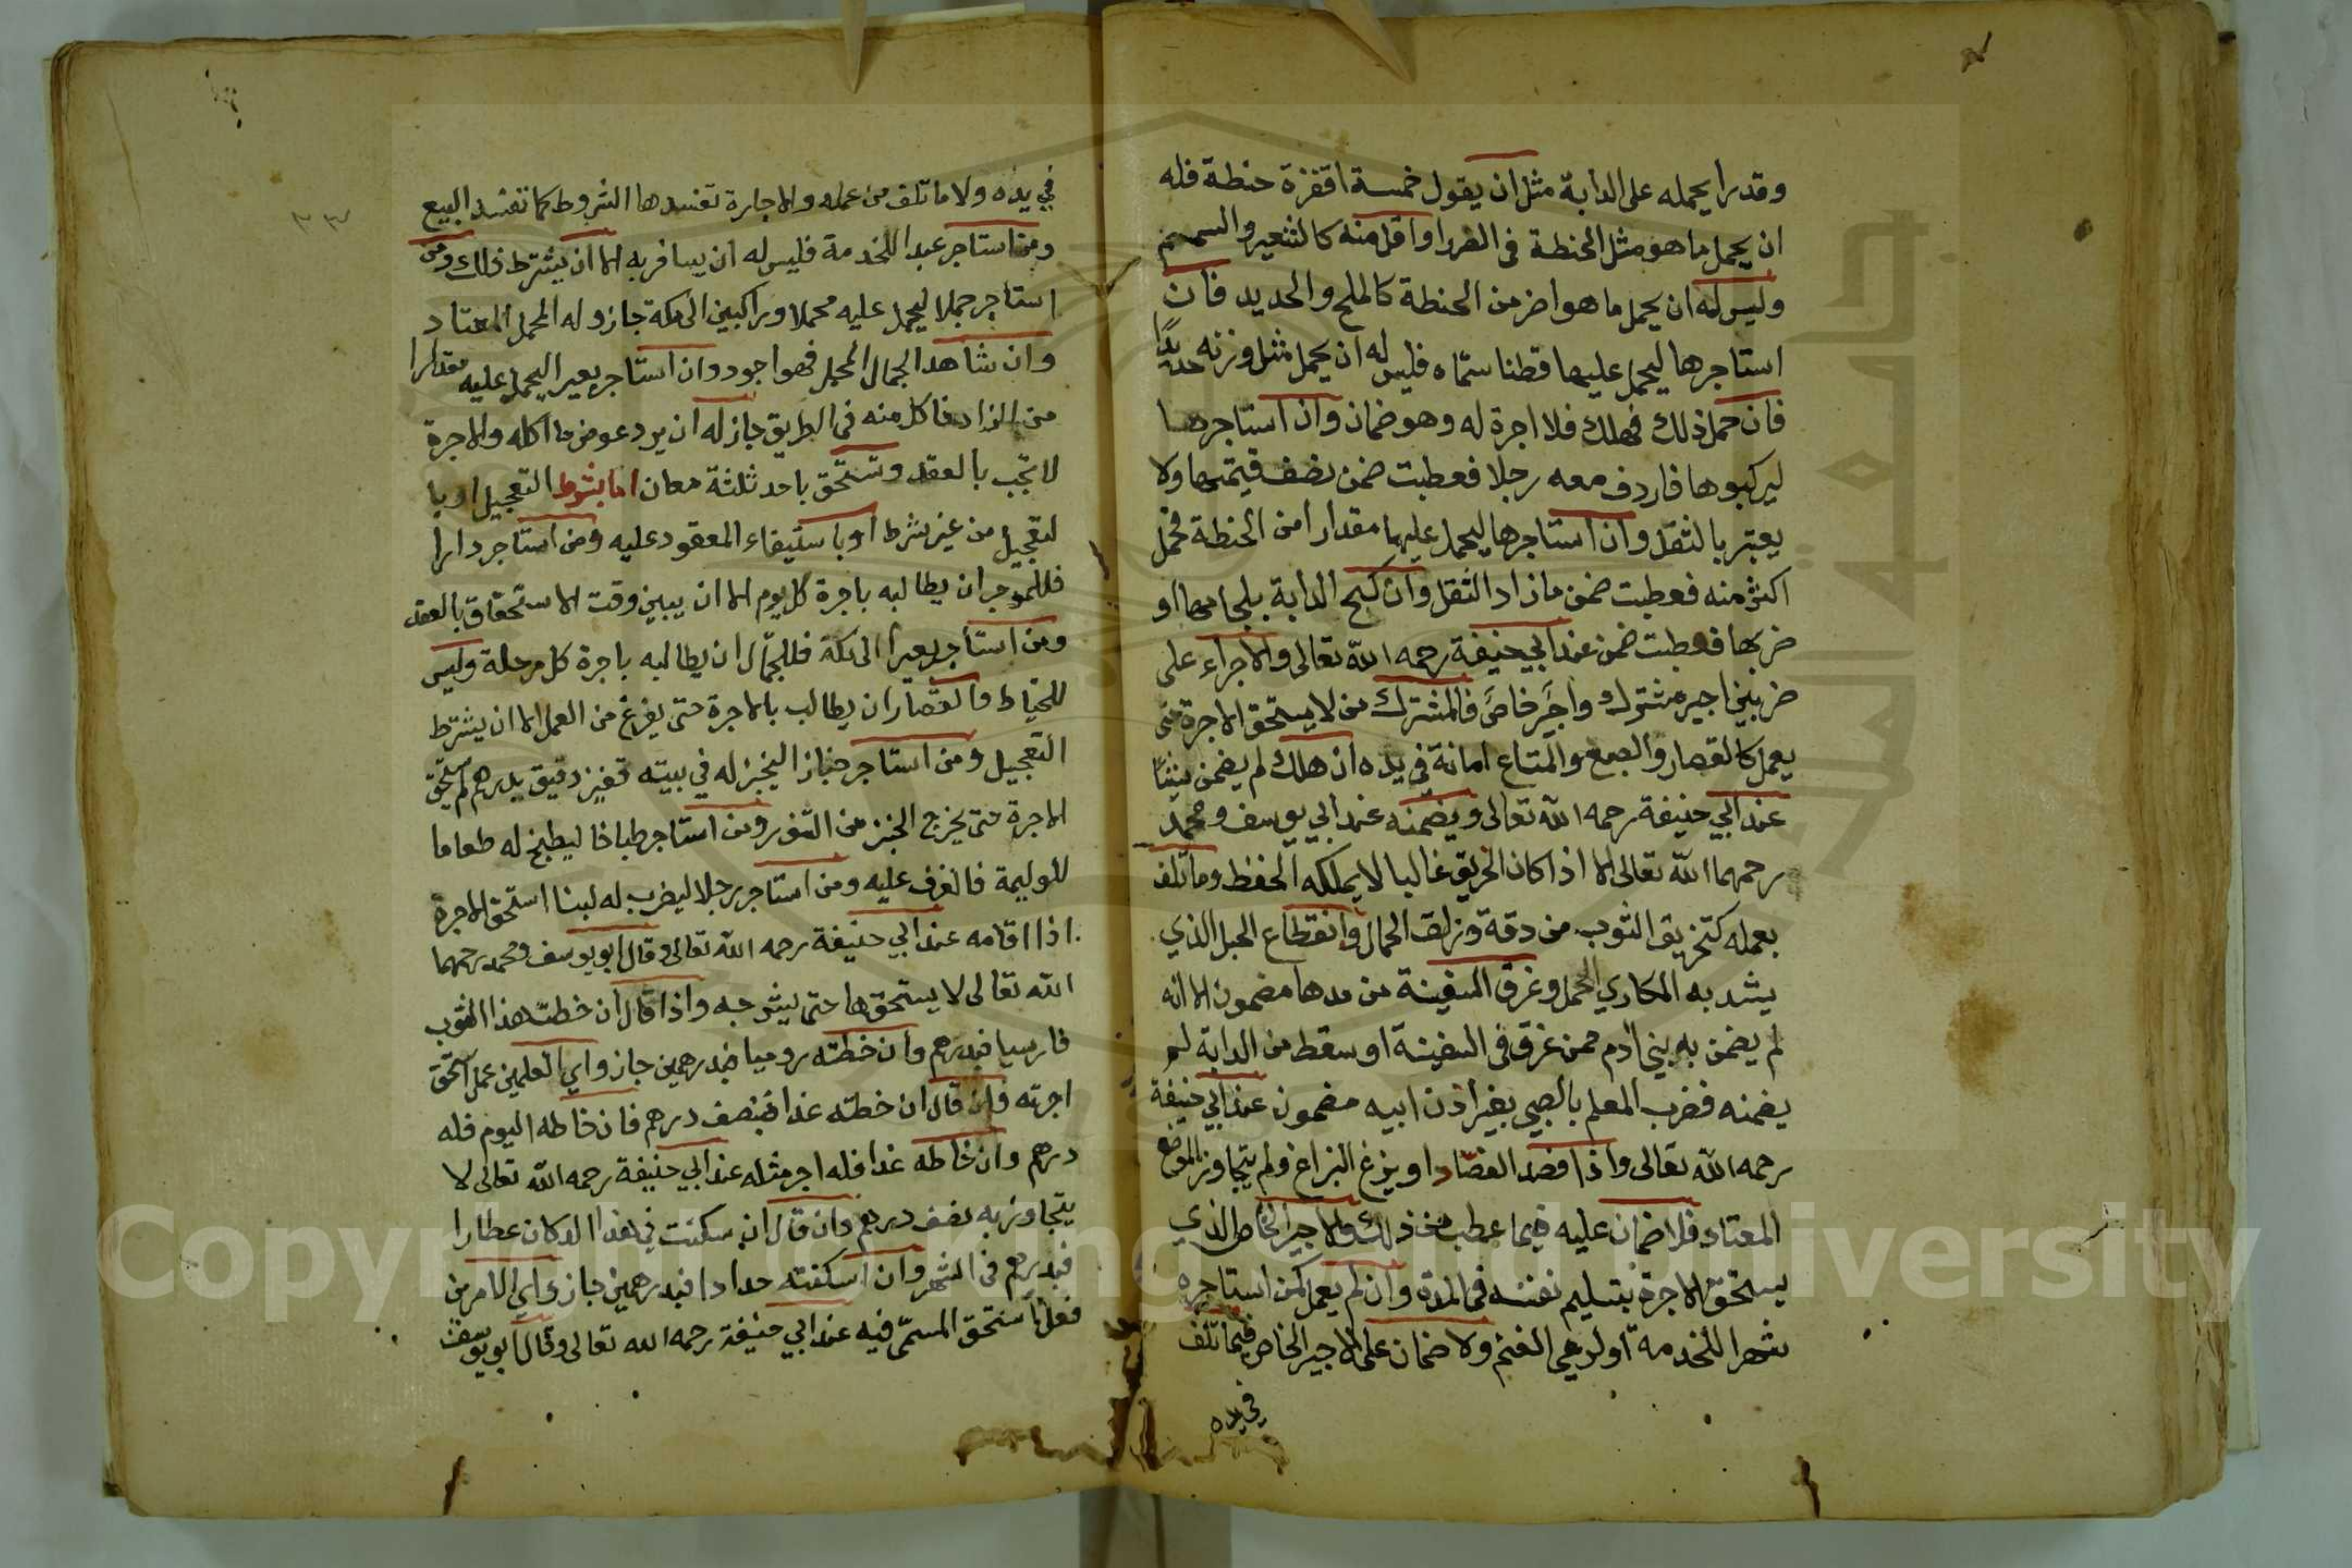 وقدرا يحمله على الدابة مثل ان يقول خمسة اقفزة حنطة فله
ان يحمل ما هو مثل الحنطة في الضرر او اقل منه كالشعير والسمسم
وليس له ان يحمل ما هو اضر من الحنطة كالملح والحديد فان
استاجرها ليحمل عليها قطنا سماه فليس له ان يحمل مثل وزنه حديدًا
فان حمل ذلك فهلك فلا اجرة له وهو ضمان وان استاجرها
ليركبوها فاردف معه رجلا فعطبت ضمن نصف قيمتها ولا
يعتبر بالثقل وان استاجرها ليحمل عليها مقدارا من الحنطة فحمل
اكثر منه فعطبت ضمن ما زاد الثقل وان كبح الدابة بلجامها او
ضربها فعطبت ضمن عند ابي حنيفة رحمه الله تعالى والاجراء على
ضربين اجير مشترك واجير خاص فالمشترك من لا يستحق الاجرة حتى
يعمل كالقصار والصبغ والمتاع امانة في يده ان هلك لم يضمن شيئًا
عند ابي حنيفة رحمه الله تعالى ويضمنه عند ابي يوسف ومحمد
رحمهما الله تعالى الا اذا كان الحريق غالبا لا يملكه الحفظ وما تلف
بعمله كتخزيق الثوب من دقة وزلق الحمال وانقطاع الحبل الذي
يشد به المكاري الحمل وغرق السفينة من مدها مضمون الا انه
لم يضمن به بني ادم ممن غرق في السفينة او سقط من الدابة لم
يضمنه فضرب المعلم بالصبي بغير اذن ابيه مضمون عند ابي حنيفة
رحمه الله تعالى واذا فصد الفصاد او بزغ البزاغ ولم يتجاوز الموضع
المعتاد فلا ضمان عليه فيما عطب من ذلك والاجير الخاص الذي
يستحق الاجرة بتسليم نفسه في المدة وان لم يعمل كمن استاجره
شهرا للخدمة او لرعي الغنم ولا ضمان على الاجير الخاص فيما تلف
في يده
في يده ولا ما تلف من عمله والاجارة تفسدها الشروط كما تفسد البيع
ومن استاجر عبدا للخدمة فليس له ان يسافر به الا ان يشترط ذلك ومن
استاجر جملا ليحمل عليه محملا وراكبين الى مكة جاز وله المحمل المعتاد
وان شاهد الجمال المحمل فهو اجود وان استاجر بعيرا ليحمل عليه مقدارا
من الزاد فاكل منه في الطريق جاز له ان يرد عوض ما اكله والاجرة
لا تجب بالعقد وتستحق باحد ثلثة معان اما بشرط التعجيل او با
لتعجيل من غير شرط او باستيفاء المعقود عليه ومن استاجر دارا
فللموجر ان يطالبه باجرة كل يوم الا ان يبين وقت الاستحقاق بالعقد
ومن استاجر بعيرا الى مكة فللجمال ان يطالبه باجرة كل مرحلة وليس
للخياط والقصار ان يطالب بالاجرة حتى يفرغ من العمل الا ان يشترط
التعجيل ومن استاجر خبازا ليخبز له في بيته قفيز دقيق بدرهم لم يستحق
الاجرة حتى يخرج الخبز من التنور ومن استاجر طباخا ليطبخ له طعاما
للوليمة فالغرف عليه ومن استاجر رجلا ليضرب له لبنا استحق الاجرة
اذا اقامه عند ابي حنيفة رحمه الله تعالى وقال ابو يوسف ومحمد رحمهما
الله تعالى لا يستحقها حتى يشرجه واذا قال ان خطت هذا الثوب
فارسيا فبدرهم وان خطته روميا فبدرهمين جاز واي العلمين عمل استحق
اجرته وان قال ان خطته غدا فبنصف درهم فان خاطه اليوم فله
درهم وان خاطه غدا فله اجر مثله عند ابي حنيفة رحمه الله تعالى لا
يتجاوز به نصف درهم وان قال ان سكنت في هذا الدكان عطارا
فبدرهم في الشهر وان اسكنته حدادا فبدرهمين جاز واي الامرين
فعل استحق المسمى فيه عند ابي حنيفة رحمه الله تعالى وقال ابو يوسف
Copyright © King Saud University